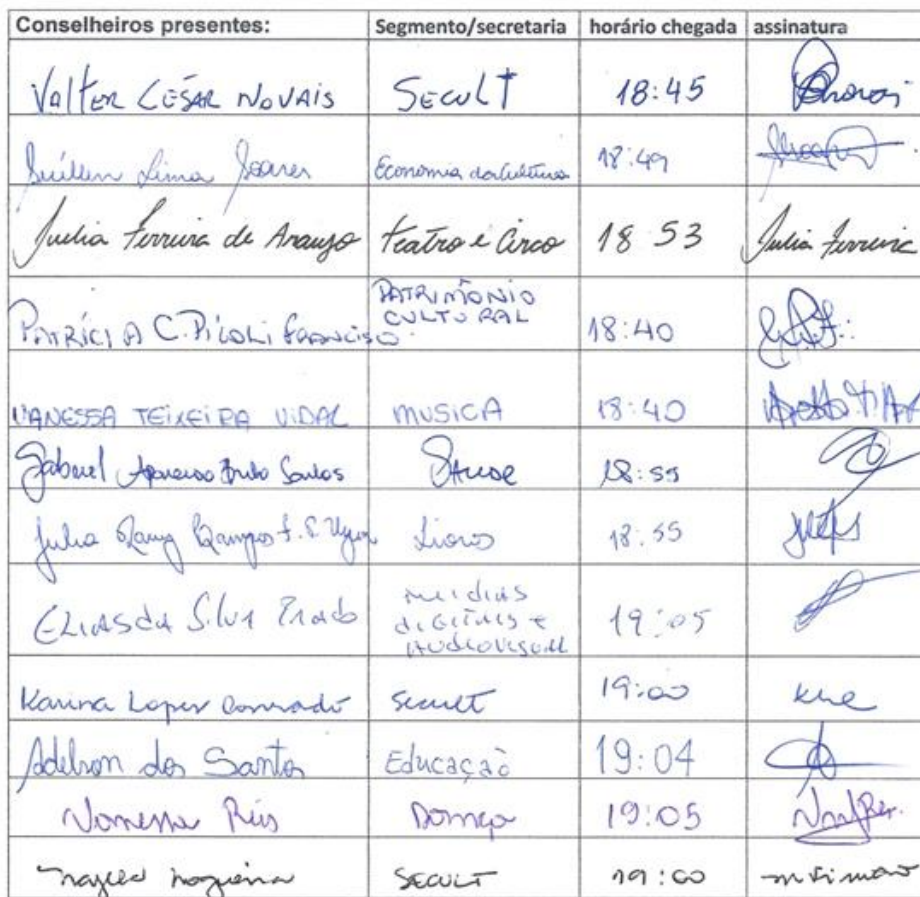 Conselheiros presentes: Segmento/secretaria horário chegada assinatura
Valter César Novais Secult 18:45
Suéllen Lima Soares Economia da Cultura 18:49
Julia Ferreira de Araujo teatro e Circo 18 53 Julia Ferreira
PATRIMÔNIO
CULTURAL
PATRÍCIA C. Picoli Francisco 18:40
VANESSA TEIXEIRA VIDAL MUSICA 18:40
Gabriel Santos 18:55
Julia Ramy Campos Livros 18:55
Elias da Silva Prado midias
digitais e
audiovisual
19:05
Karina Lopes Conrado Secult 19:00
Adelson dos Santos Educação 19:04
Vanessa Reis Dança 19:05
SECULT 19:00